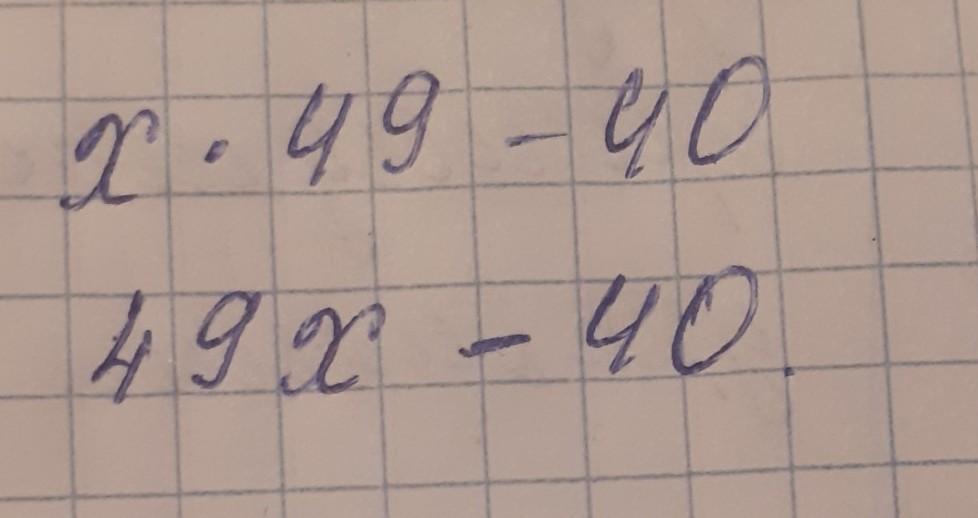 x · 49 - 40
49x - 40.